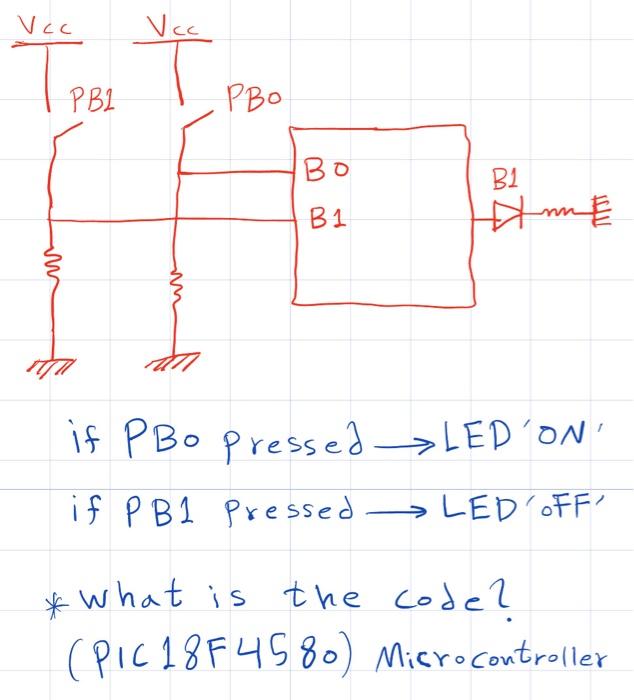 Vcc Vcc
PB1 PB0
B0
B1
B1
if PB0 pressed → LED 'ON'
if PB1 Pressed → LED 'oFF'
* what is the code?
(PIC18F4580) Microcontroller